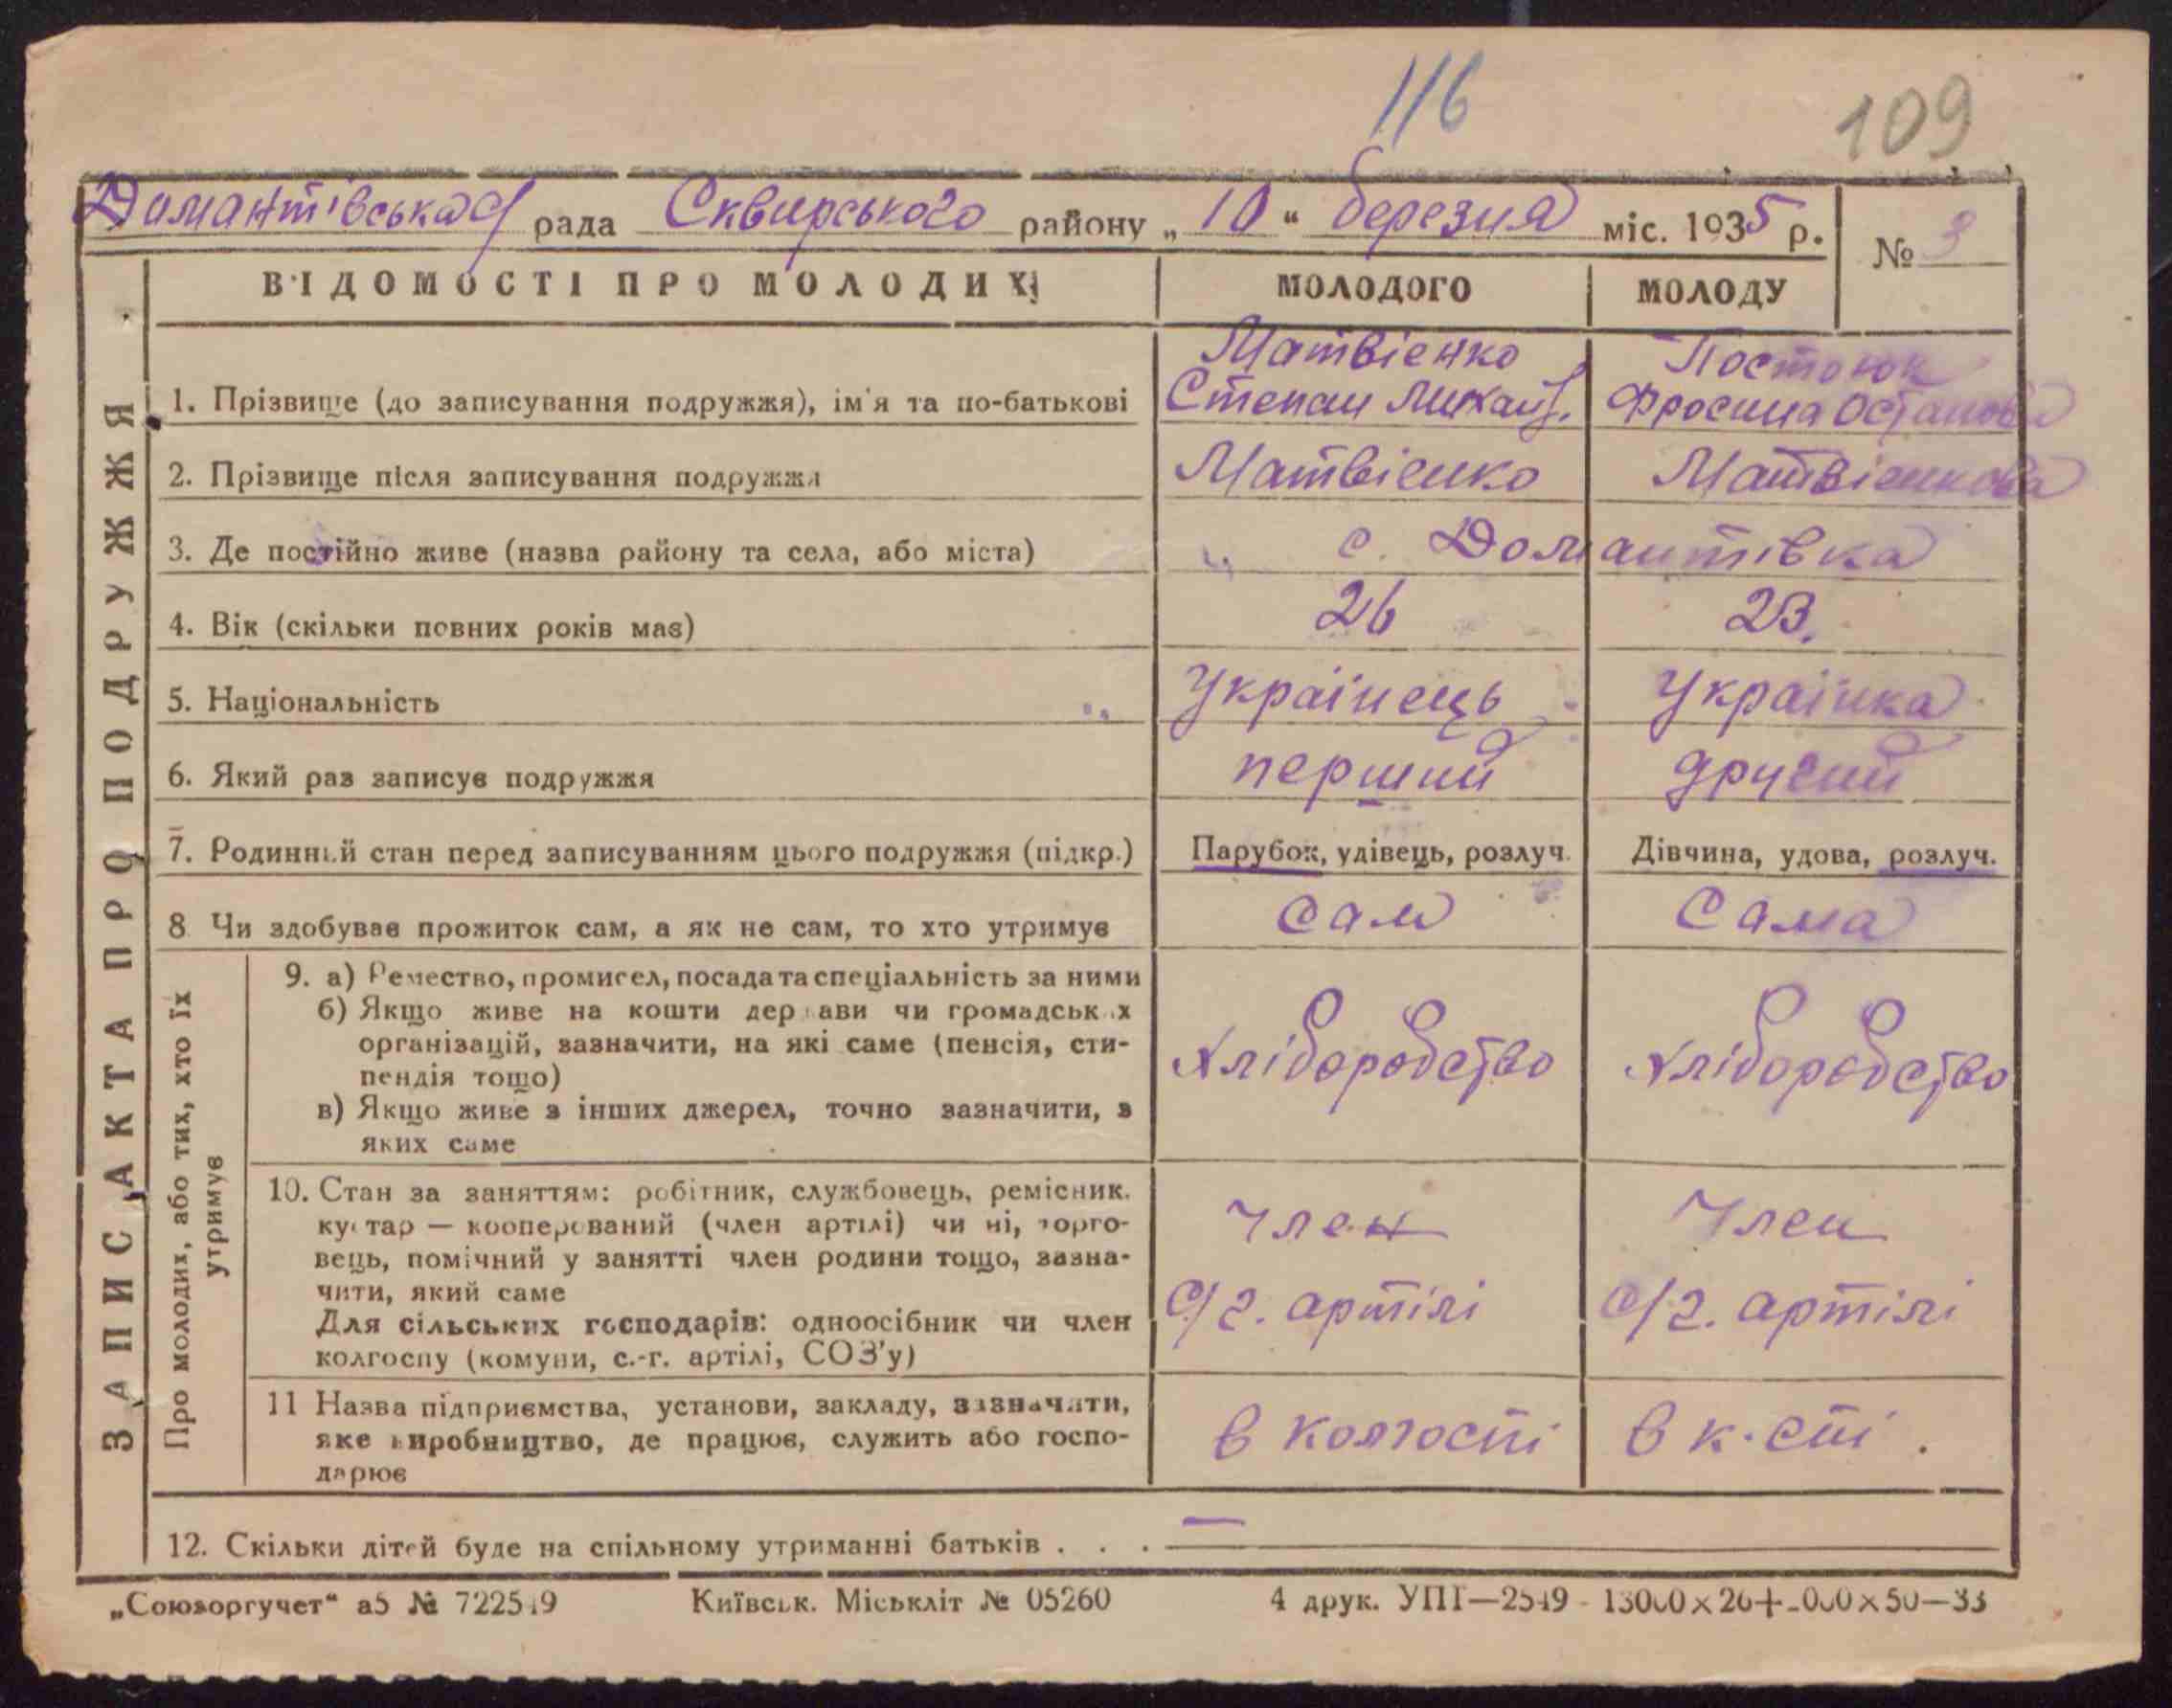 116
109
Домантівська с/ рада Сквирського району „10“ березня міс. 1935 р.
№ 3
ВІДОМОСТІ ПРО МОЛОДИХ
МОЛОДОГО
МОЛОДУ
ЗАПИС АКТА ПРО ПОДРУЖЖЯ
1. Прізвище (до записування подружжя), ім'я та по-батькові
Матвієнко
Степан Михайл.
Постоюк
Фросина Остапова
2. Прізвище після записування подружжя
Матвієнко
Матвієнкова
3. Де постійно живе (назва району та села, або міста)
с. Домантівка
4. Вік (скільки повних років має)
26
23.
5. Національність
Українець
Українка
6. Який раз записує подружжя
перший
другий
7. Родинний стан перед записуванням цього подружжя (підкр.)
Парубок, удівець, розлуч.
Дівчина, удова, розлуч.
8 Чи здобуває прожиток сам, а як не сам, то хто утримує
Сам
Сама
Про молодих, або тих, хто їх
утримує
9. а) Ремество, промисел, посада та спеціальність за ними
б) Якщо живе на кошти держави чи громадських
організацій, зазначити, на які саме (пенсія, сти-
пендія тощо)
в) Якщо живе з інших джерел, точно зазначити, з
яких саме
Хліборобство
Хліборобство
10. Стан за заняттям: робітник, службовець, ремісник.
кустар — кооперований (член артілі) чи ні, торго-
вець, помічний у занятті член родини тощо, зазна-
чити, який саме
Для сільських господарів: одноосібник чи член
колгоспу (комуни, с.-г. артілі, СОЗ'у)
Член
с/г. артілі
Член
с/г. артілі
11 Назва підприємства, установи, закладу, зазначити,
яке виробництво, де працює, служить або госпо-
дарює
в колгоспі
в к.спі.
12. Скільки дітей буде на спільному утриманні батьків . . . —
„Союзоргучет“ а5 № 722519
Київськ. Міськліт № 05260
4 друк. УПП—2519